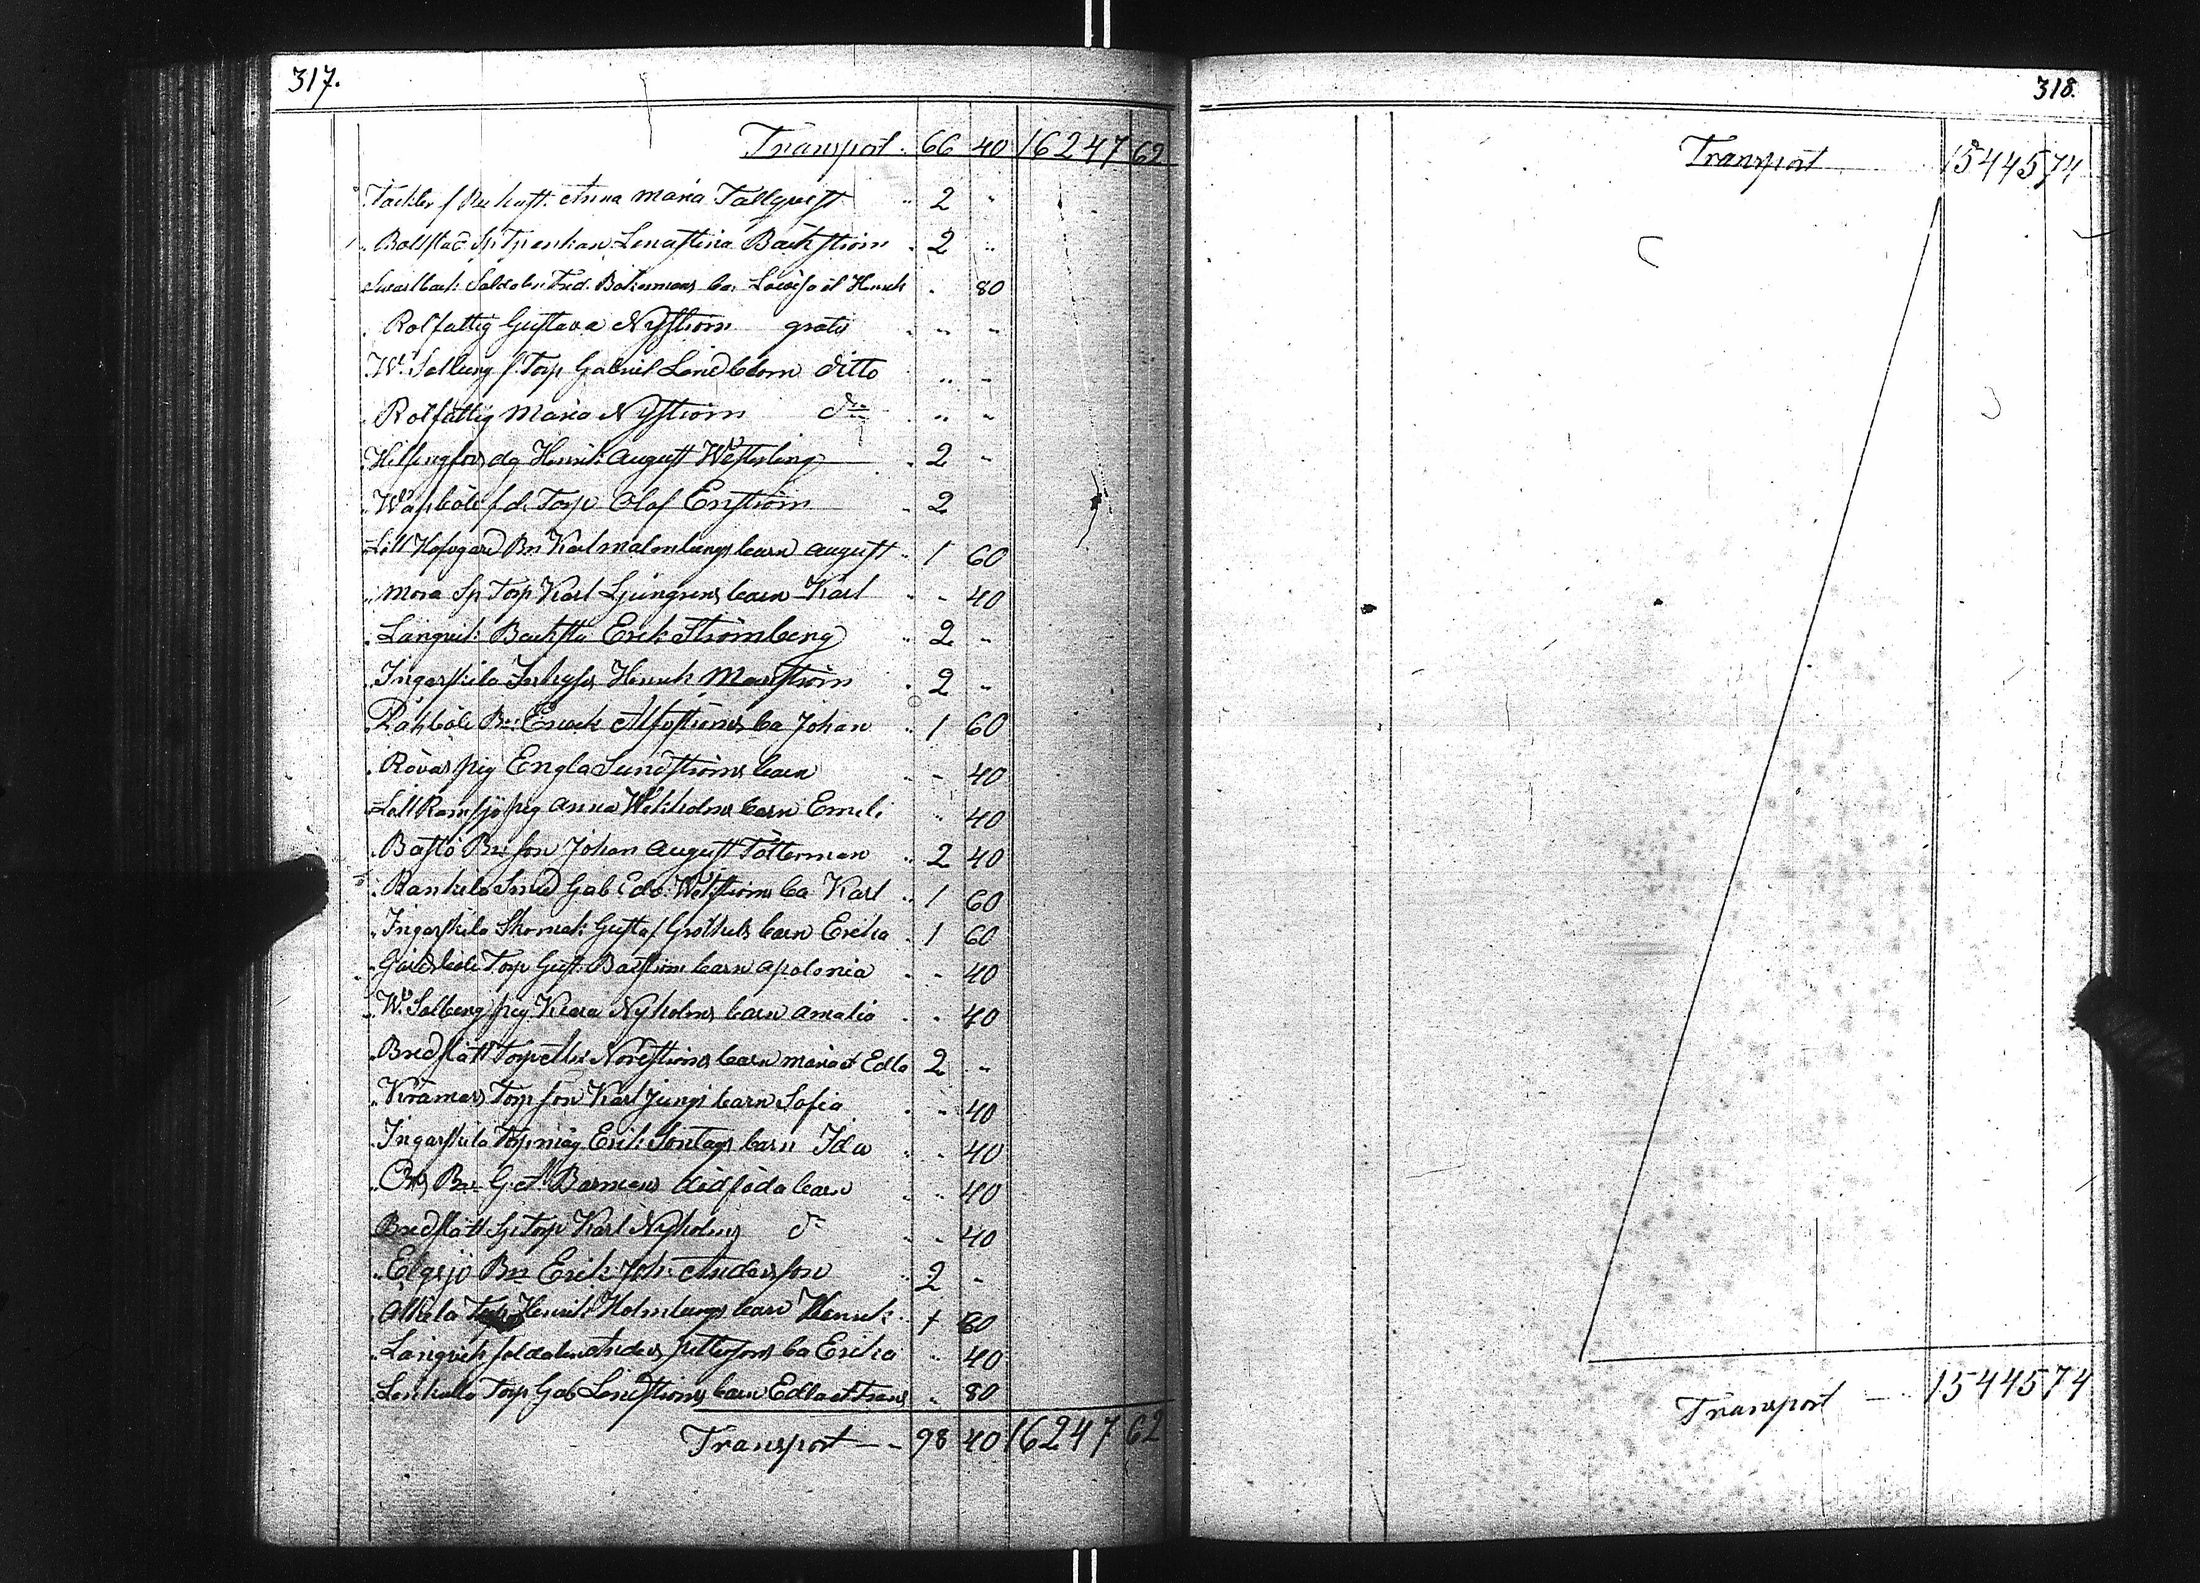 317.
Transport 66 40 16247 62
Täckter f Bu Anna Maria Tallqvist 2 "
Bollstad Sp Lenastina Bäckström 2 "
Soldaten Fred. Bokermans ba Lovisa et Henrik " 80
Rotfattig Gustava Nyström gratis " "
W. Solberg f Torp Gabriel Lindblom ditto " "
Rotfattig Maria Nyström do " "
Helsingfors dg Henrik August Westerling 2 "
Wässböle f d. Torp Olof Enström 2
Lill Hofgård Bn Karl Malmbergs barn August 1 60
Mora Sp Torp Karl Ljungrens barn Karl " 40
Långvik Backstu Erik Strömberg 2 "
Ingarskila Inhyses Henrik Manström 2 "
Påhlböle Bn Enock Alfströms ba Johan 1 60
Rövas pig Engla Sundströms barn " 40
Lill Ramsjö pig Anna Wikholms barn Emeli " 40
Båstö Bn son Johan August Tötterman 2 40
Rankila Smed Gab. Edv. Wikströms ba Karl 1 60
Ingarskila Skomak. Gustaf Grothels barn Erika 1 60
Gårdsböle Torp Gust. Båström barn Apolonia " 40
W. Solberg pig Klara Nyholms barn Amalia " 40
Bredslätt Torp Alex Nordströms barn Maria et Edla 2 "
Krämars Torp son Karl Jungs barn Sofia " 40
Ingarskila Torp måg Erik Sontags barn Ida " 40
Ors Bn G. A. Barmans dödföda barn " 40
Bredslätt Sp Torp Karl Nyholms do " 40
Elgsjö Bn Erik Joh. Andersson 2 "
Ollila Torp Henrik Holmbergs barn Henrik 1 60
Långvik soldaten Anders Pettersons ba Erika " 40
Lenkulla Torp Gab Lindströms barn Edla et Frans " 80
Transport 98 40 16247 62
318.
Transport 15445 74
Transport 15445 74